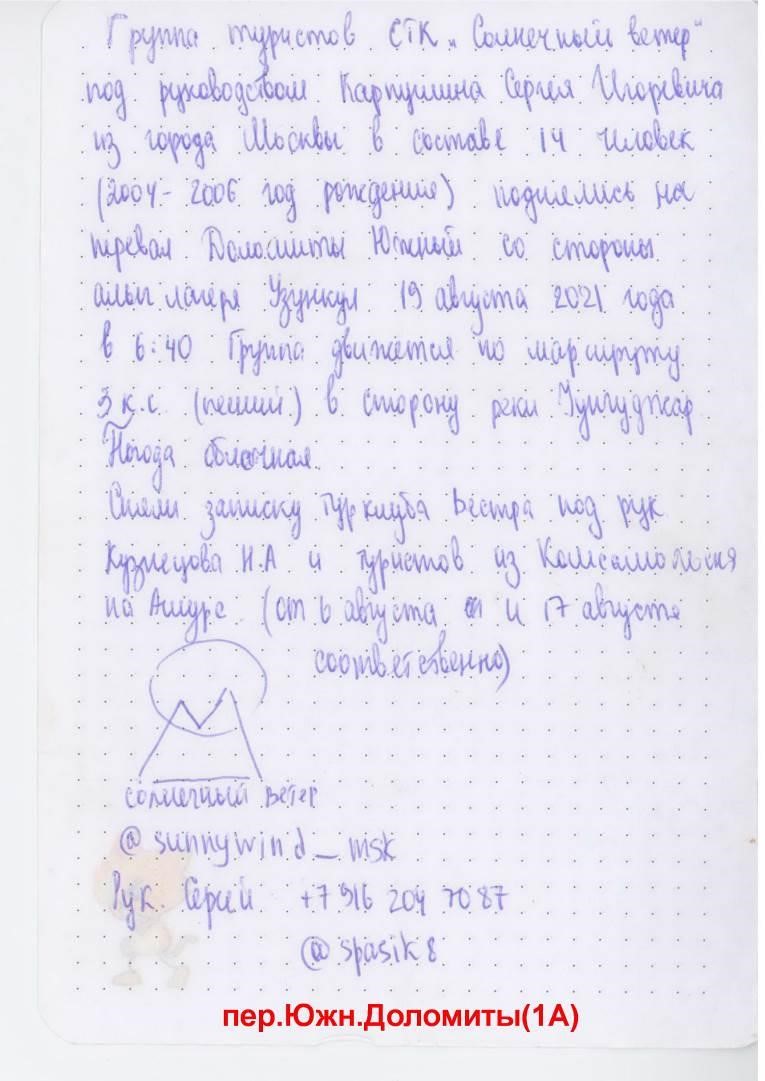 Группа туристов СТК „Солнечный ветер"
под руководством Карпушина Сергея Игоревича
из города Москвы в составе 14 человек
(2004-2006 год рождения) поднялись на
перевал Доломиты Южный со стороны
альп лагеря Узункул 19 августа 2021 года
в 6:40 Группа движется по маршруту
3 к.с. (пеший) в сторону реки Чунгуджар
Погода облачная
Сняли записку турклуба Вестра под рук
Кузнецова Н.А и туристов из Комсомольска
на Амуре (от 6 августа и 17 августа
соответственно)
солнечный ветер
@sunnywind_msk
Рук. Сергей +7 916 204 70 87
@spasik8
пер.Южн.Доломиты(1А)